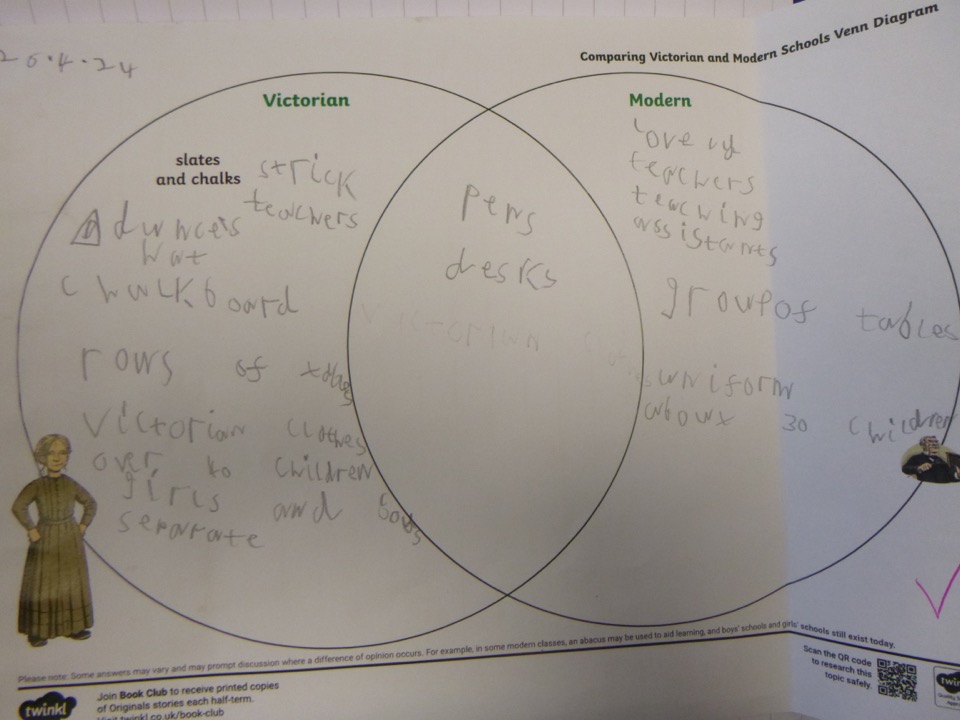 26.4.24
Comparing Victorian and Modern Schools Venn Diagram
Victorian
slates
and chalks
strick
teachers
dunce's
hat
chulkboard
rows of
Victorian clothes
over to children
girls and boys
seperate
pens
desks
victorian
Modern
lovely
teachers
teaching
assistants
group of tables
uniform
about 30 children
Please note: Some answers may vary and may prompt discussion where a difference of opinion occurs. For example, in some modern classes, an abacus may be used to aid learning, and boys' schools and girls' schools still exist today.
twinkl
Join Book Club to receive printed copies
of Originals stories each half-term.
Visit twinkl.co.uk/book-club
Scan the QR code
to research this
topic safely.